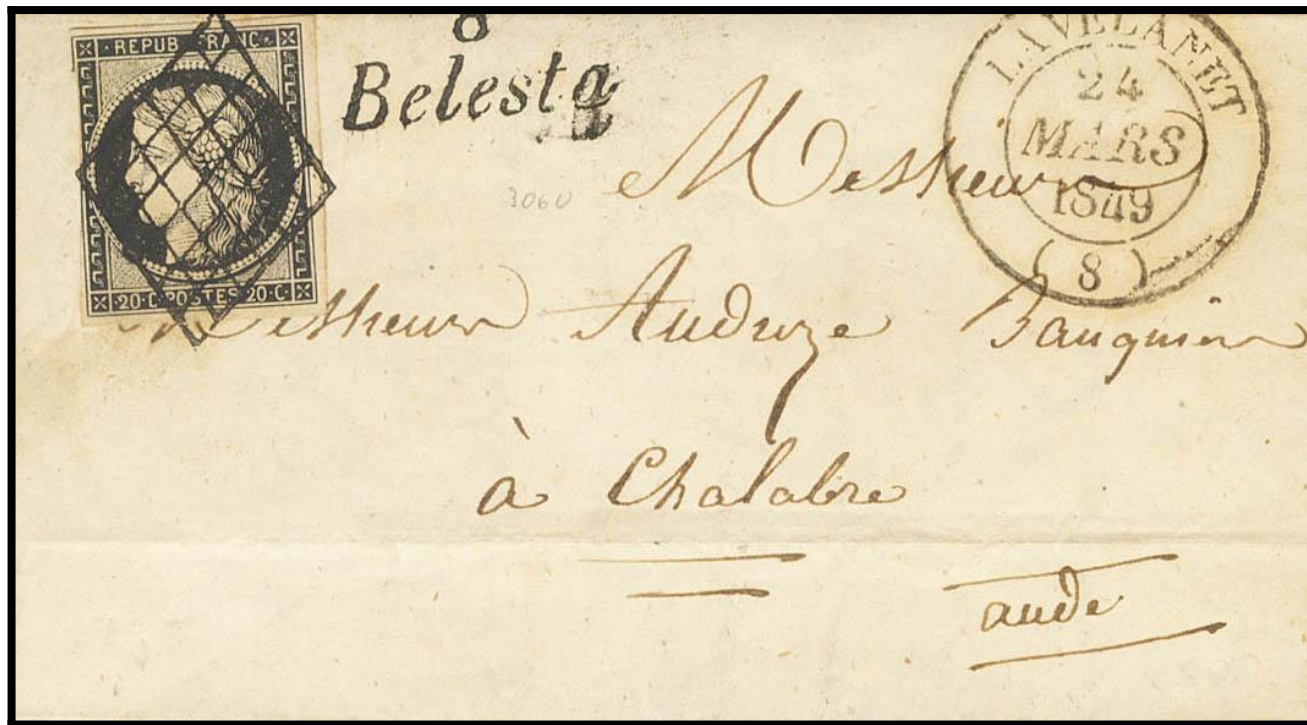 REPUB FRANC
20·C·POSTES·20·C
8
Belesta
LAVELANET
24
MARS
1849
(8)
3060
Messieurs
Messieurs Audouze
à Chalabre
aude